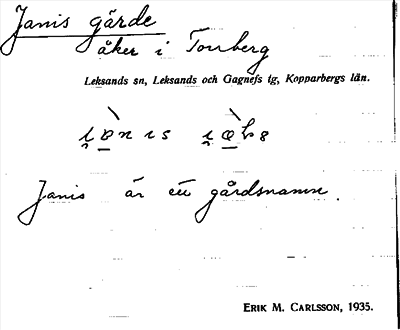 Janis gärde
åker i Tonberg
Leksands sn, Leksands och Gagnefs tg, Kopparbergs län.
Janis är ett gårdsnamn.
ERIK M. CARLSSON, 1935.